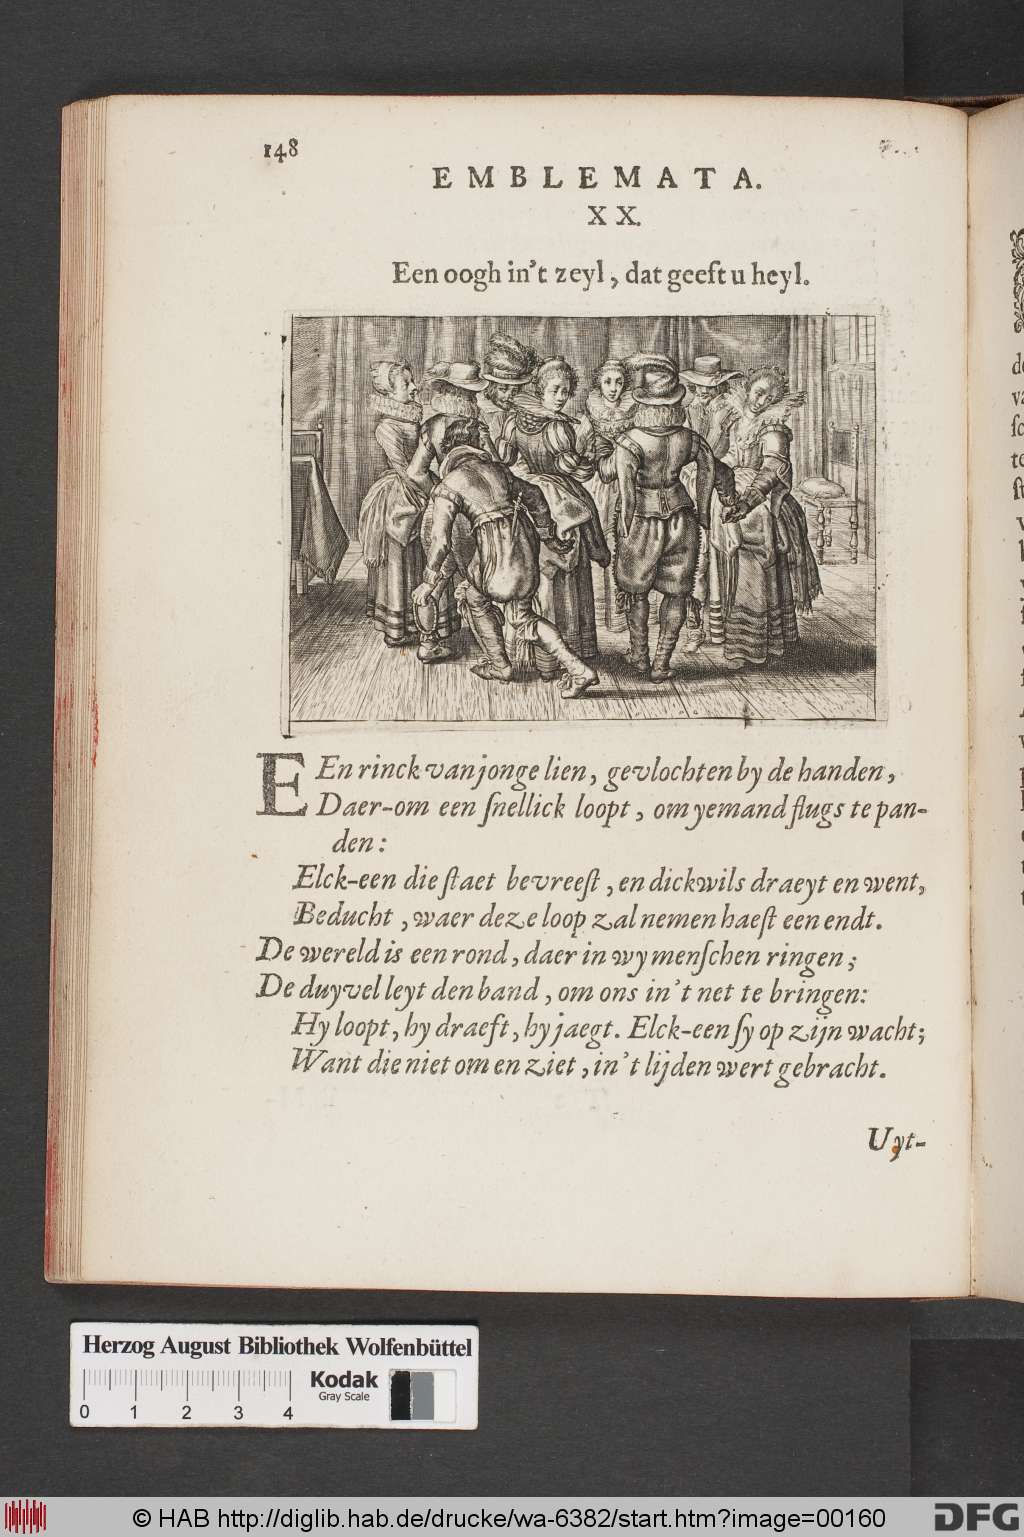 148
EMBLEMATA.
XX.
Een oogh in't zeyl, dat geeft u heyl.
EEn rinck van jonge lien, gevlochten by de handen,
Daer-om een ſnellick loopt, om yemand flugs te pan-
den:
Elck-een die ſtaet bevreeſt, en dickwils draeyt en went,
Beducht, waer deze loop zal nemen haeſt een endt.
De wereld is een rond, daer in wy menſchen ringen;
De duyvel leyt den band, om ons in't net te bringen:
Hy loopt, hy draeft, hy jaegt. Elck-een ſy op zijn wacht;
Want die niet om en ziet, in't lijden wert gebracht.
Uyt-
Herzog August Bibliothek Wolfenbüttel
Kodak
Gray Scale
0 1 2 3 4
© HAB http://diglib.hab.de/drucke/wa-6382/start.htm?image=00160
DFG